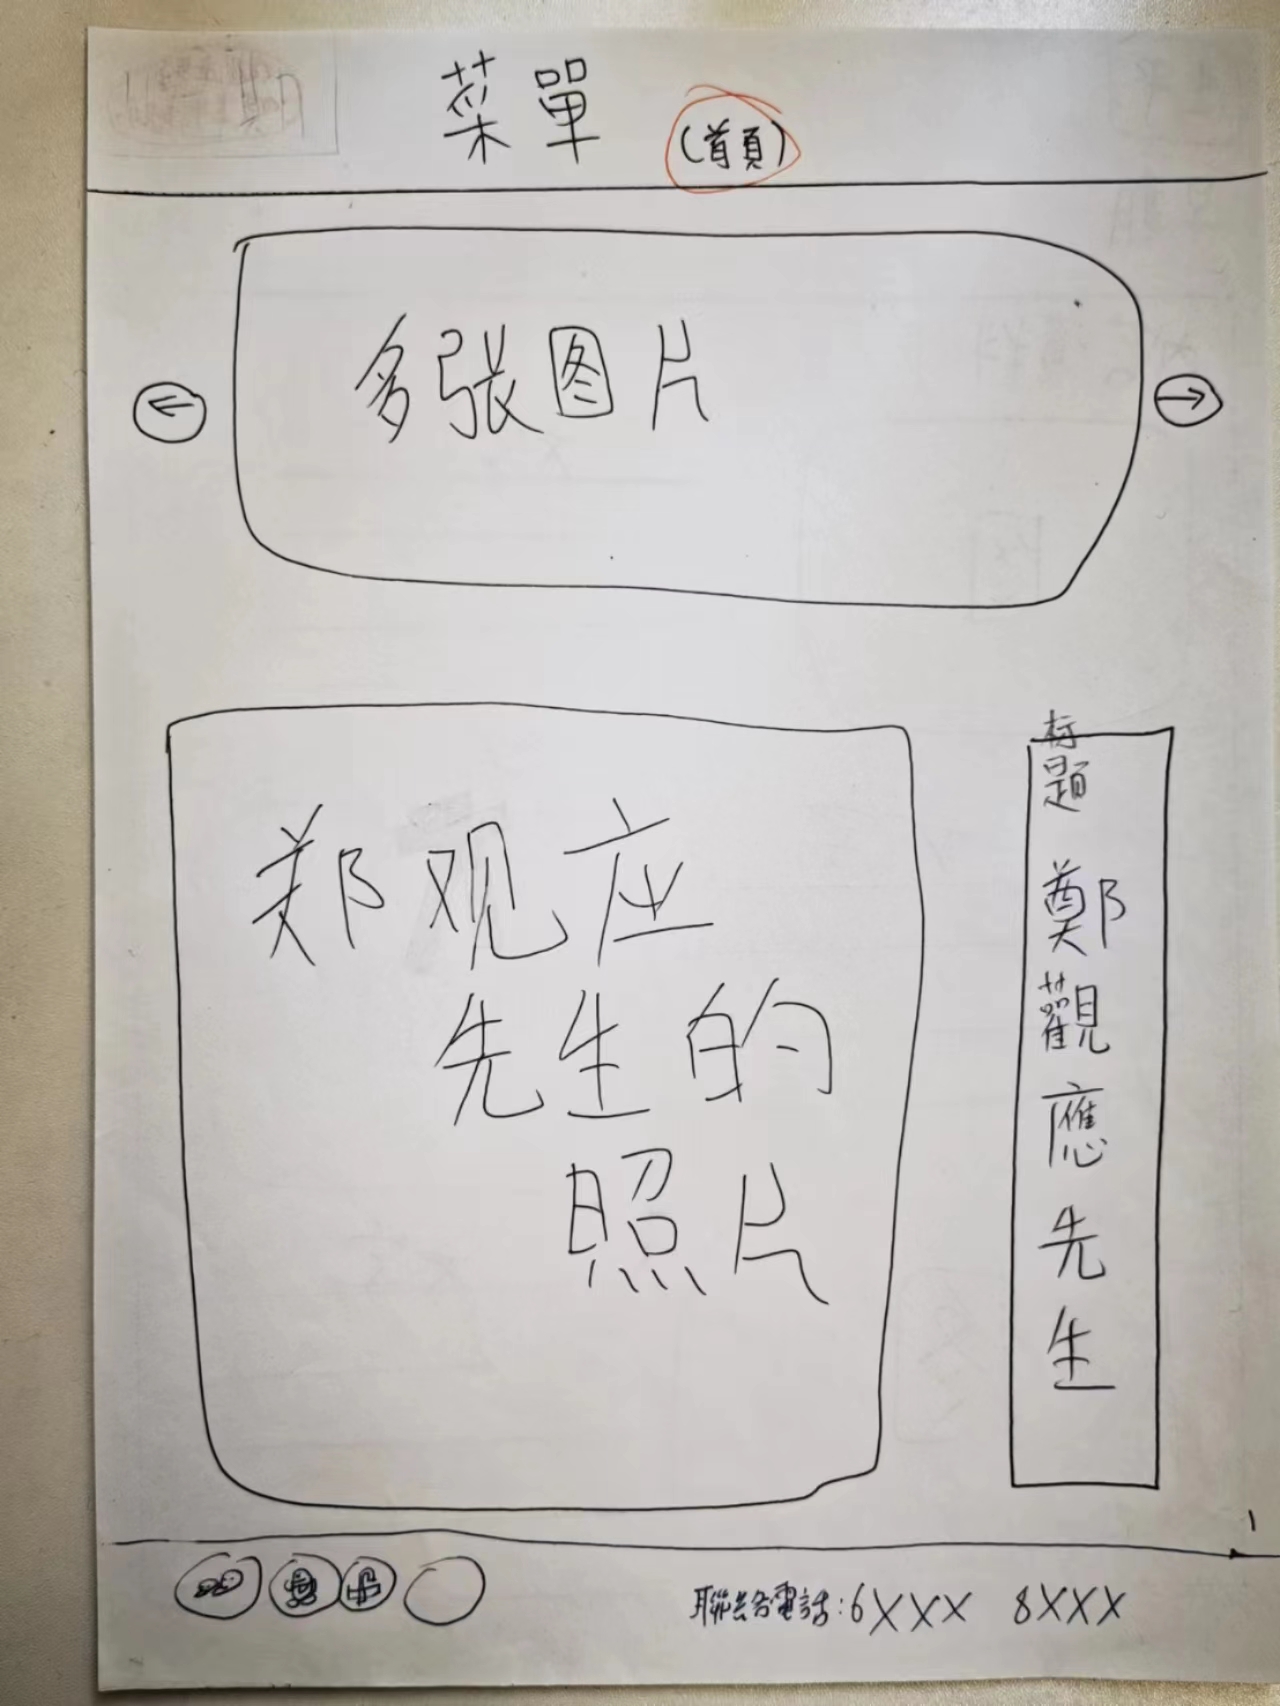 菜單
(首頁)
←
→
多張图片
郑观应
先生的
照片
标題
鄭觀應先生
1
聯絡電話:6XXX 8XXX